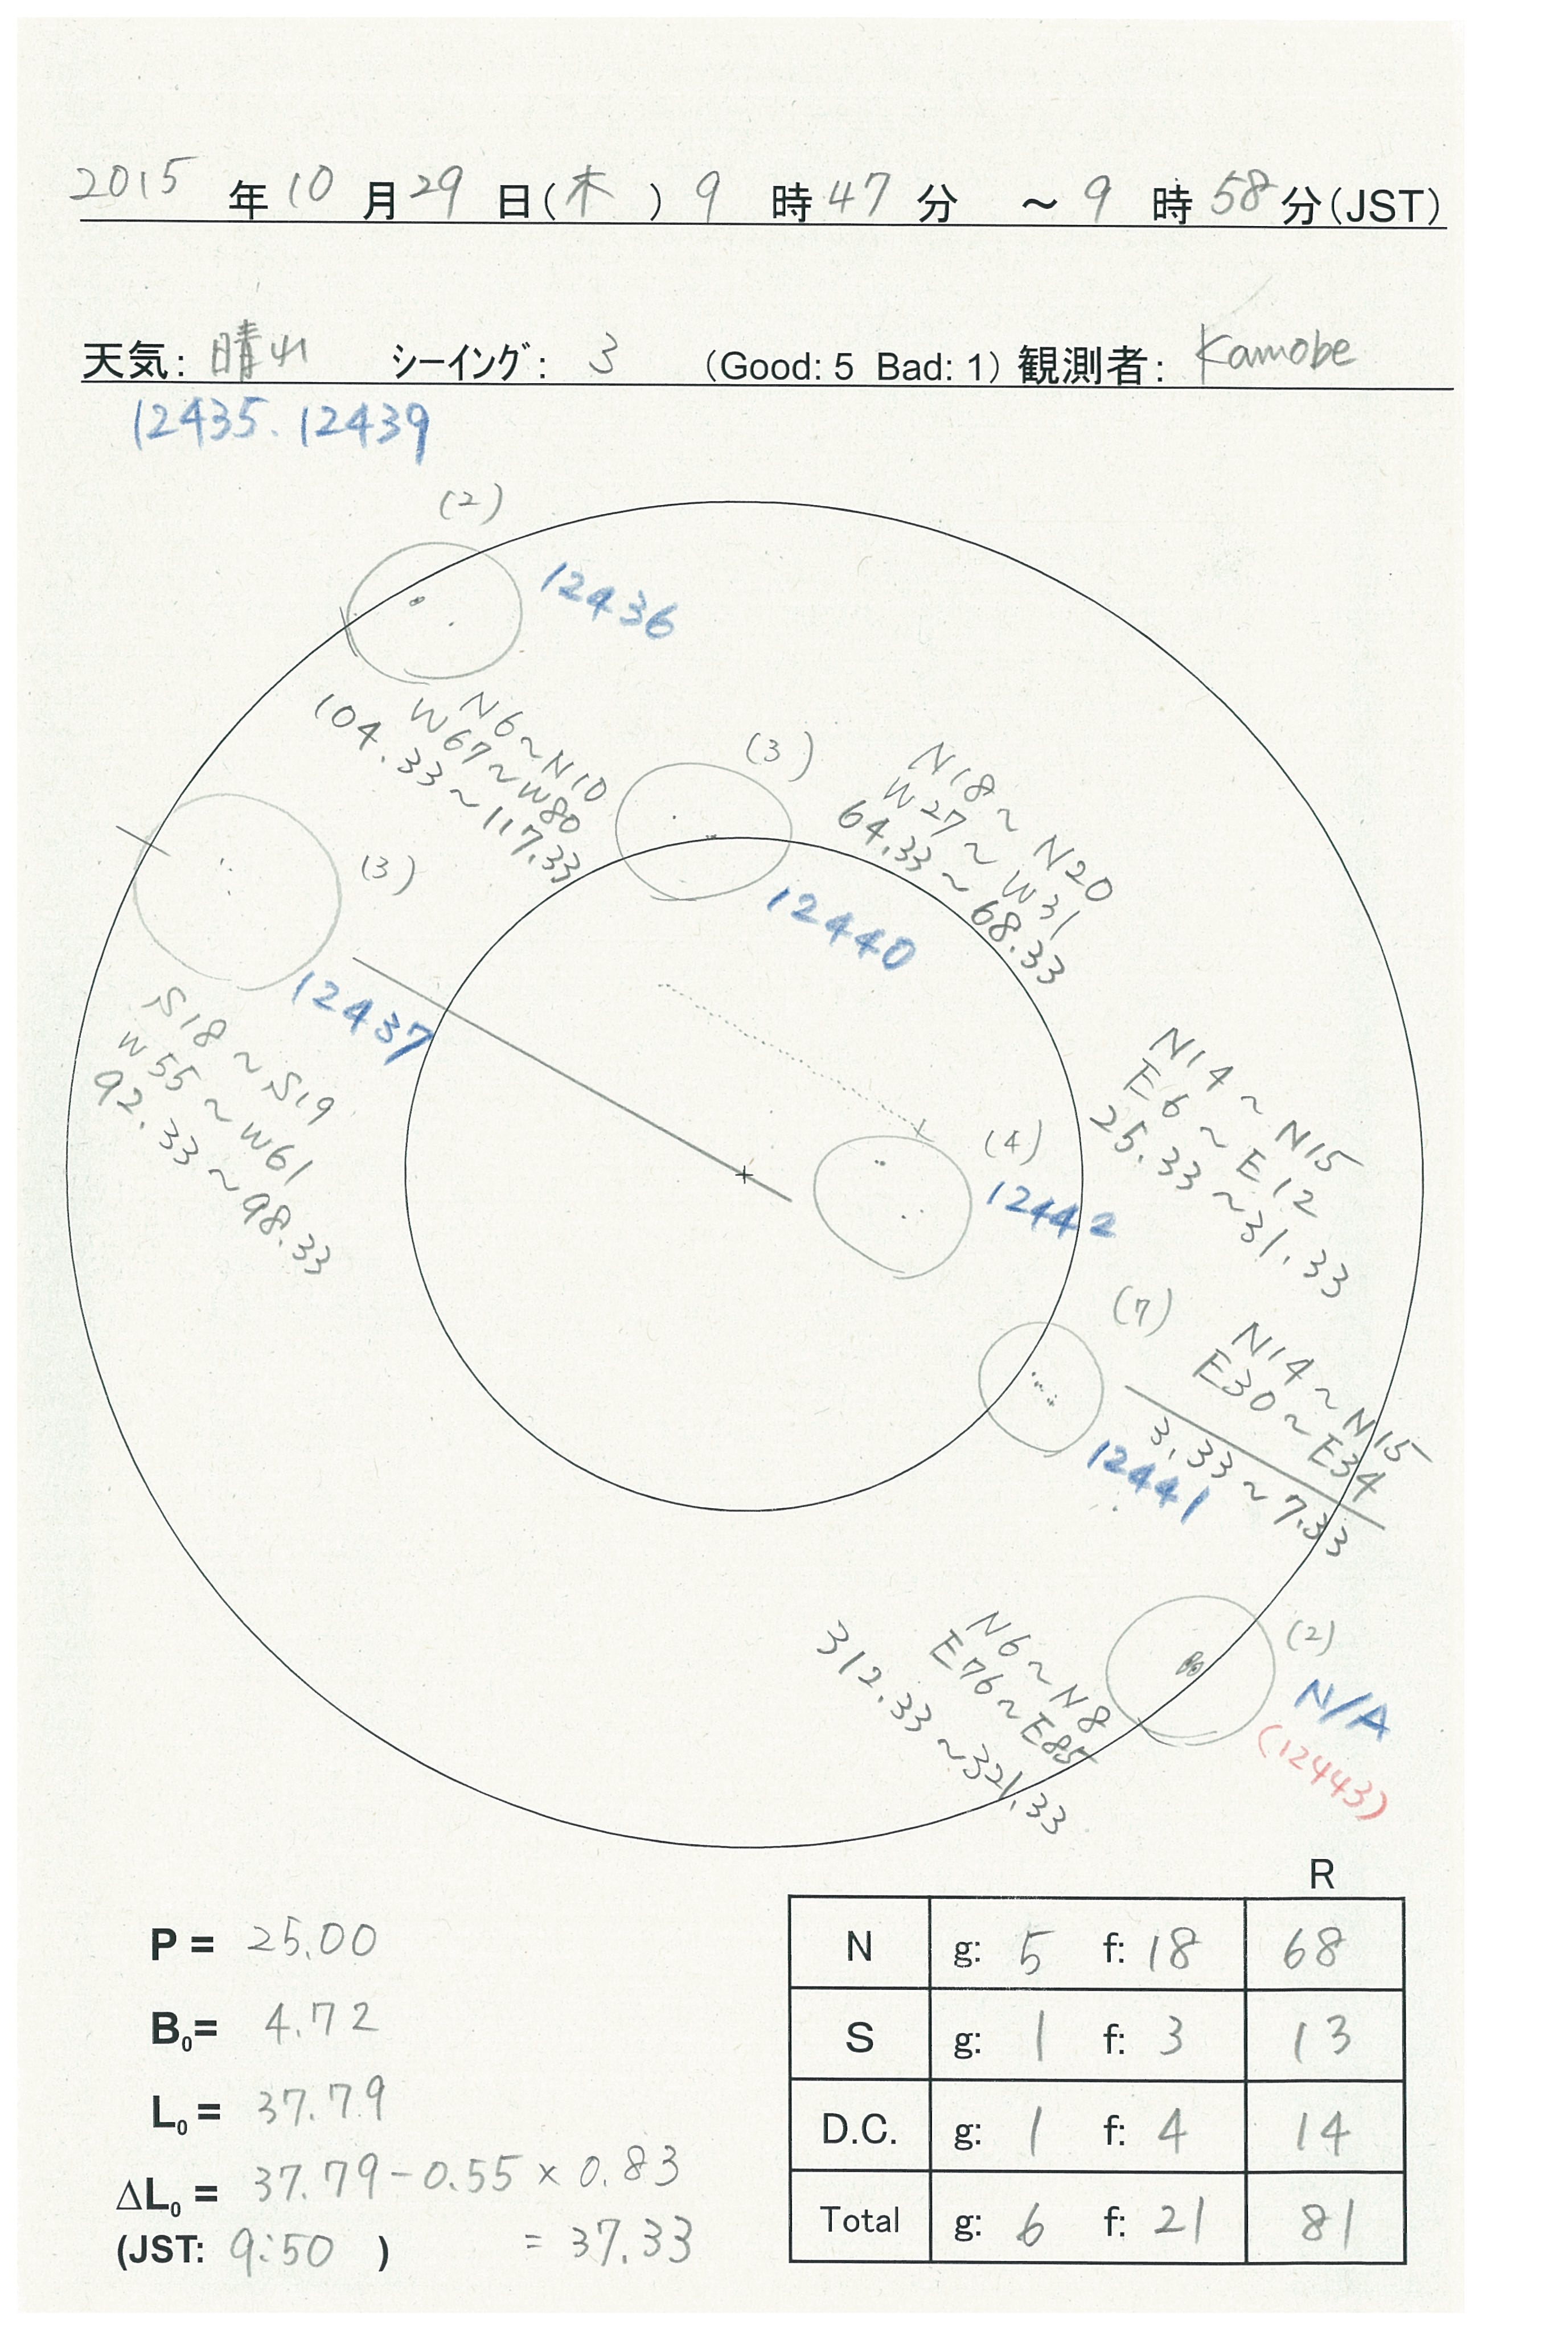 2015 年 10 月 29 日(木) 9 時 47 分 ～ 9 時 58 分(JST)
天気: 晴れ シーイング: 3 (Good: 5 Bad: 1) 観測者: Kamobe
12435. 12439
(2)
12436
N6~N10
W67~W80
104.33~117.33
(3)
N18~N20
W27~W31
64.33~68.33
12440
(3)
12437
S18~S19
W55~W61
92.33~98.33
N14~N15
E6~E12
25.33~31.33
(4)
12442
(7)
N14~N15
E30~E34
3.33~7.33
12441
N6~N8
E76~E85
312.33~321.33
(2)
N/A
(12443)
P = 25.00
B0= 4.72
L0 = 37.79
ΔL0 = 37.79-0.55×0.83
(JST: 9:50 ) = 37.33
R
N g: 5 f: 18 68
S g: 1 f: 3 13
D.C. g: 1 f: 4 14
Total g: 6 f: 21 81